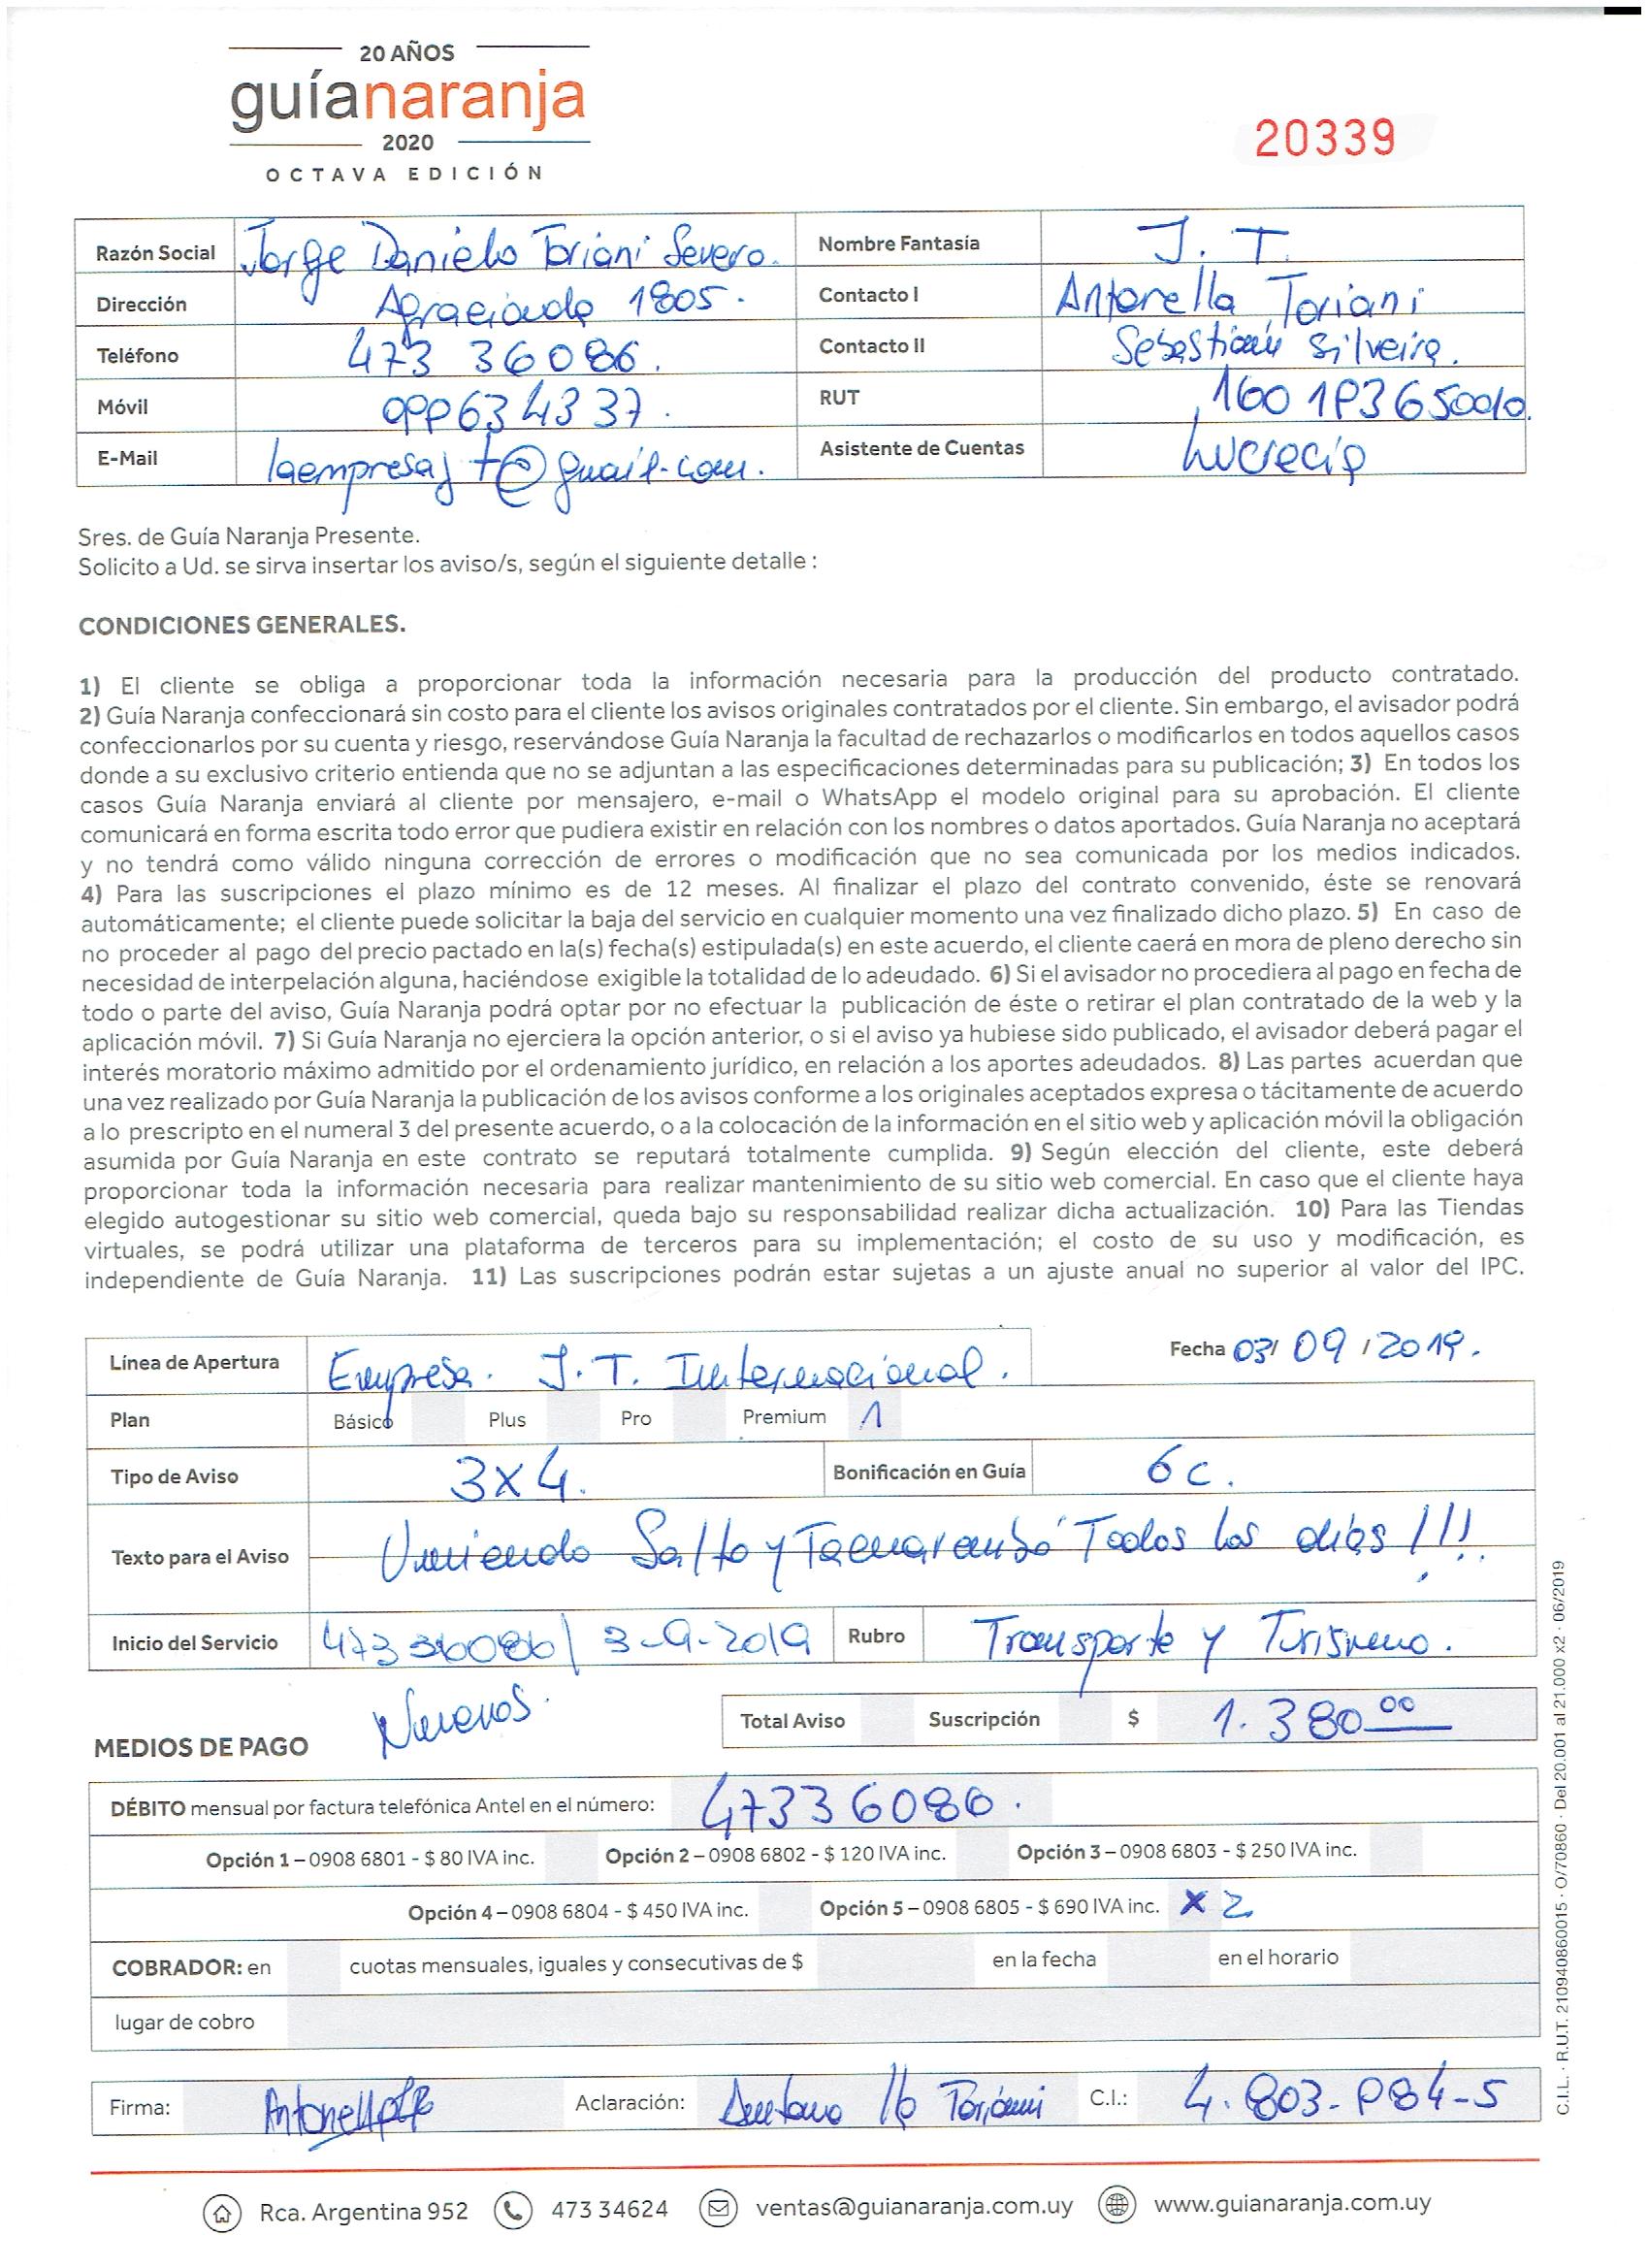 20 AÑOS
guíanaranja
2020
OCTAVA EDICIÓN
20339
Razón Social Jorge Danielo Toriani Severo. Nombre Fantasía J. T.
Dirección Agraciada 1805. Contacto I Antonella Toriani
Teléfono 473 36086. Contacto II Sebastián Silveira.
Móvil 099634337. RUT 160193650010.
E-Mail laempresajt@gmail.com. Asistente de Cuentas Lucrecia
Sres. de Guía Naranja Presente.
Solicito a Ud. se sirva insertar los aviso/s, según el siguiente detalle :
CONDICIONES GENERALES.
1) El cliente se obliga a proporcionar toda la información necesaria para la producción del producto contratado.
2) Guía Naranja confeccionará sin costo para el cliente los avisos originales contratados por el cliente. Sin embargo, el avisador podrá
confeccionarlos por su cuenta y riesgo, reservándose Guía Naranja la facultad de rechazarlos o modificarlos en todos aquellos casos
donde a su exclusivo criterio entienda que no se adjuntan a las especificaciones determinadas para su publicación; 3) En todos los
casos Guía Naranja enviará al cliente por mensajero, e-mail o WhatsApp el modelo original para su aprobación. El cliente
comunicará en forma escrita todo error que pudiera existir en relación con los nombres o datos aportados. Guía Naranja no aceptará
y no tendrá como válido ninguna corrección de errores o modificación que no sea comunicada por los medios indicados.
4) Para las suscripciones el plazo mínimo es de 12 meses. Al finalizar el plazo del contrato convenido, éste se renovará
automáticamente; el cliente puede solicitar la baja del servicio en cualquier momento una vez finalizado dicho plazo. 5) En caso de
no proceder al pago del precio pactado en la(s) fecha(s) estipulada(s) en este acuerdo, el cliente caerá en mora de pleno derecho sin
necesidad de interpelación alguna, haciéndose exigible la totalidad de lo adeudado. 6) Si el avisador no procediera al pago en fecha de
todo o parte del aviso, Guía Naranja podrá optar por no efectuar la publicación de éste o retirar el plan contratado de la web y la
aplicación móvil. 7) Si Guía Naranja no ejerciera la opción anterior, o si el aviso ya hubiese sido publicado, el avisador deberá pagar el
interés moratorio máximo admitido por el ordenamiento jurídico, en relación a los aportes adeudados. 8) Las partes acuerdan que
una vez realizado por Guía Naranja la publicación de los avisos conforme a los originales aceptados expresa o tácitamente de acuerdo
a lo prescripto en el numeral 3 del presente acuerdo, o a la colocación de la información en el sitio web y aplicación móvil la obligación
asumida por Guía Naranja en este contrato se reputará totalmente cumplida. 9) Según elección del cliente, este deberá
proporcionar toda la información necesaria para realizar mantenimiento de su sitio web comercial. En caso que el cliente haya
elegido autogestionar su sitio web comercial, queda bajo su responsabilidad realizar dicha actualización. 10) Para las Tiendas
virtuales, se podrá utilizar una plataforma de terceros para su implementación; el costo de su uso y modificación, es
independiente de Guía Naranja. 11) Las suscripciones podrán estar sujetas a un ajuste anual no superior al valor del IPC.
Línea de Apertura Empresa. J. T. Internacional. Fecha 03/ 09 / 2019.
Plan Básico Plus Pro Premium 1
Tipo de Aviso 3x4. Bonificación en Guía 6c.
Texto para el Aviso Uniendo Salto y Tacuarembó Todos los días !!!
Inicio del Servicio 47336086/ 3-9-2019 Rubro Transporte y Turismo.
Nuevos.
Total Aviso Suscripción $ 1.380.00
MEDIOS DE PAGO
DÉBITO mensual por factura telefónica Antel en el número: 47336086.
Opción 1 – 0908 6801 - $ 80 IVA inc. Opción 2 – 0908 6802 - $ 120 IVA inc. Opción 3 – 0908 6803 - $ 250 IVA inc.
Opción 4 – 0908 6804 - $ 450 IVA inc. Opción 5 – 0908 6805 - $ 690 IVA inc. x 2
COBRADOR: en cuotas mensuales, iguales y consecutivas de $ en la fecha en el horario
lugar de cobro
Firma: Aclaración: Toriani C.I.: 4.803.984-5
C.I.L. · R.U.T. 210940860015 · O/70860 · Del 20.001 al 21.000 x2 · 06/2019
Rca. Argentina 952 473 34624 ventas@guianaranja.com.uy www.guianaranja.com.uy